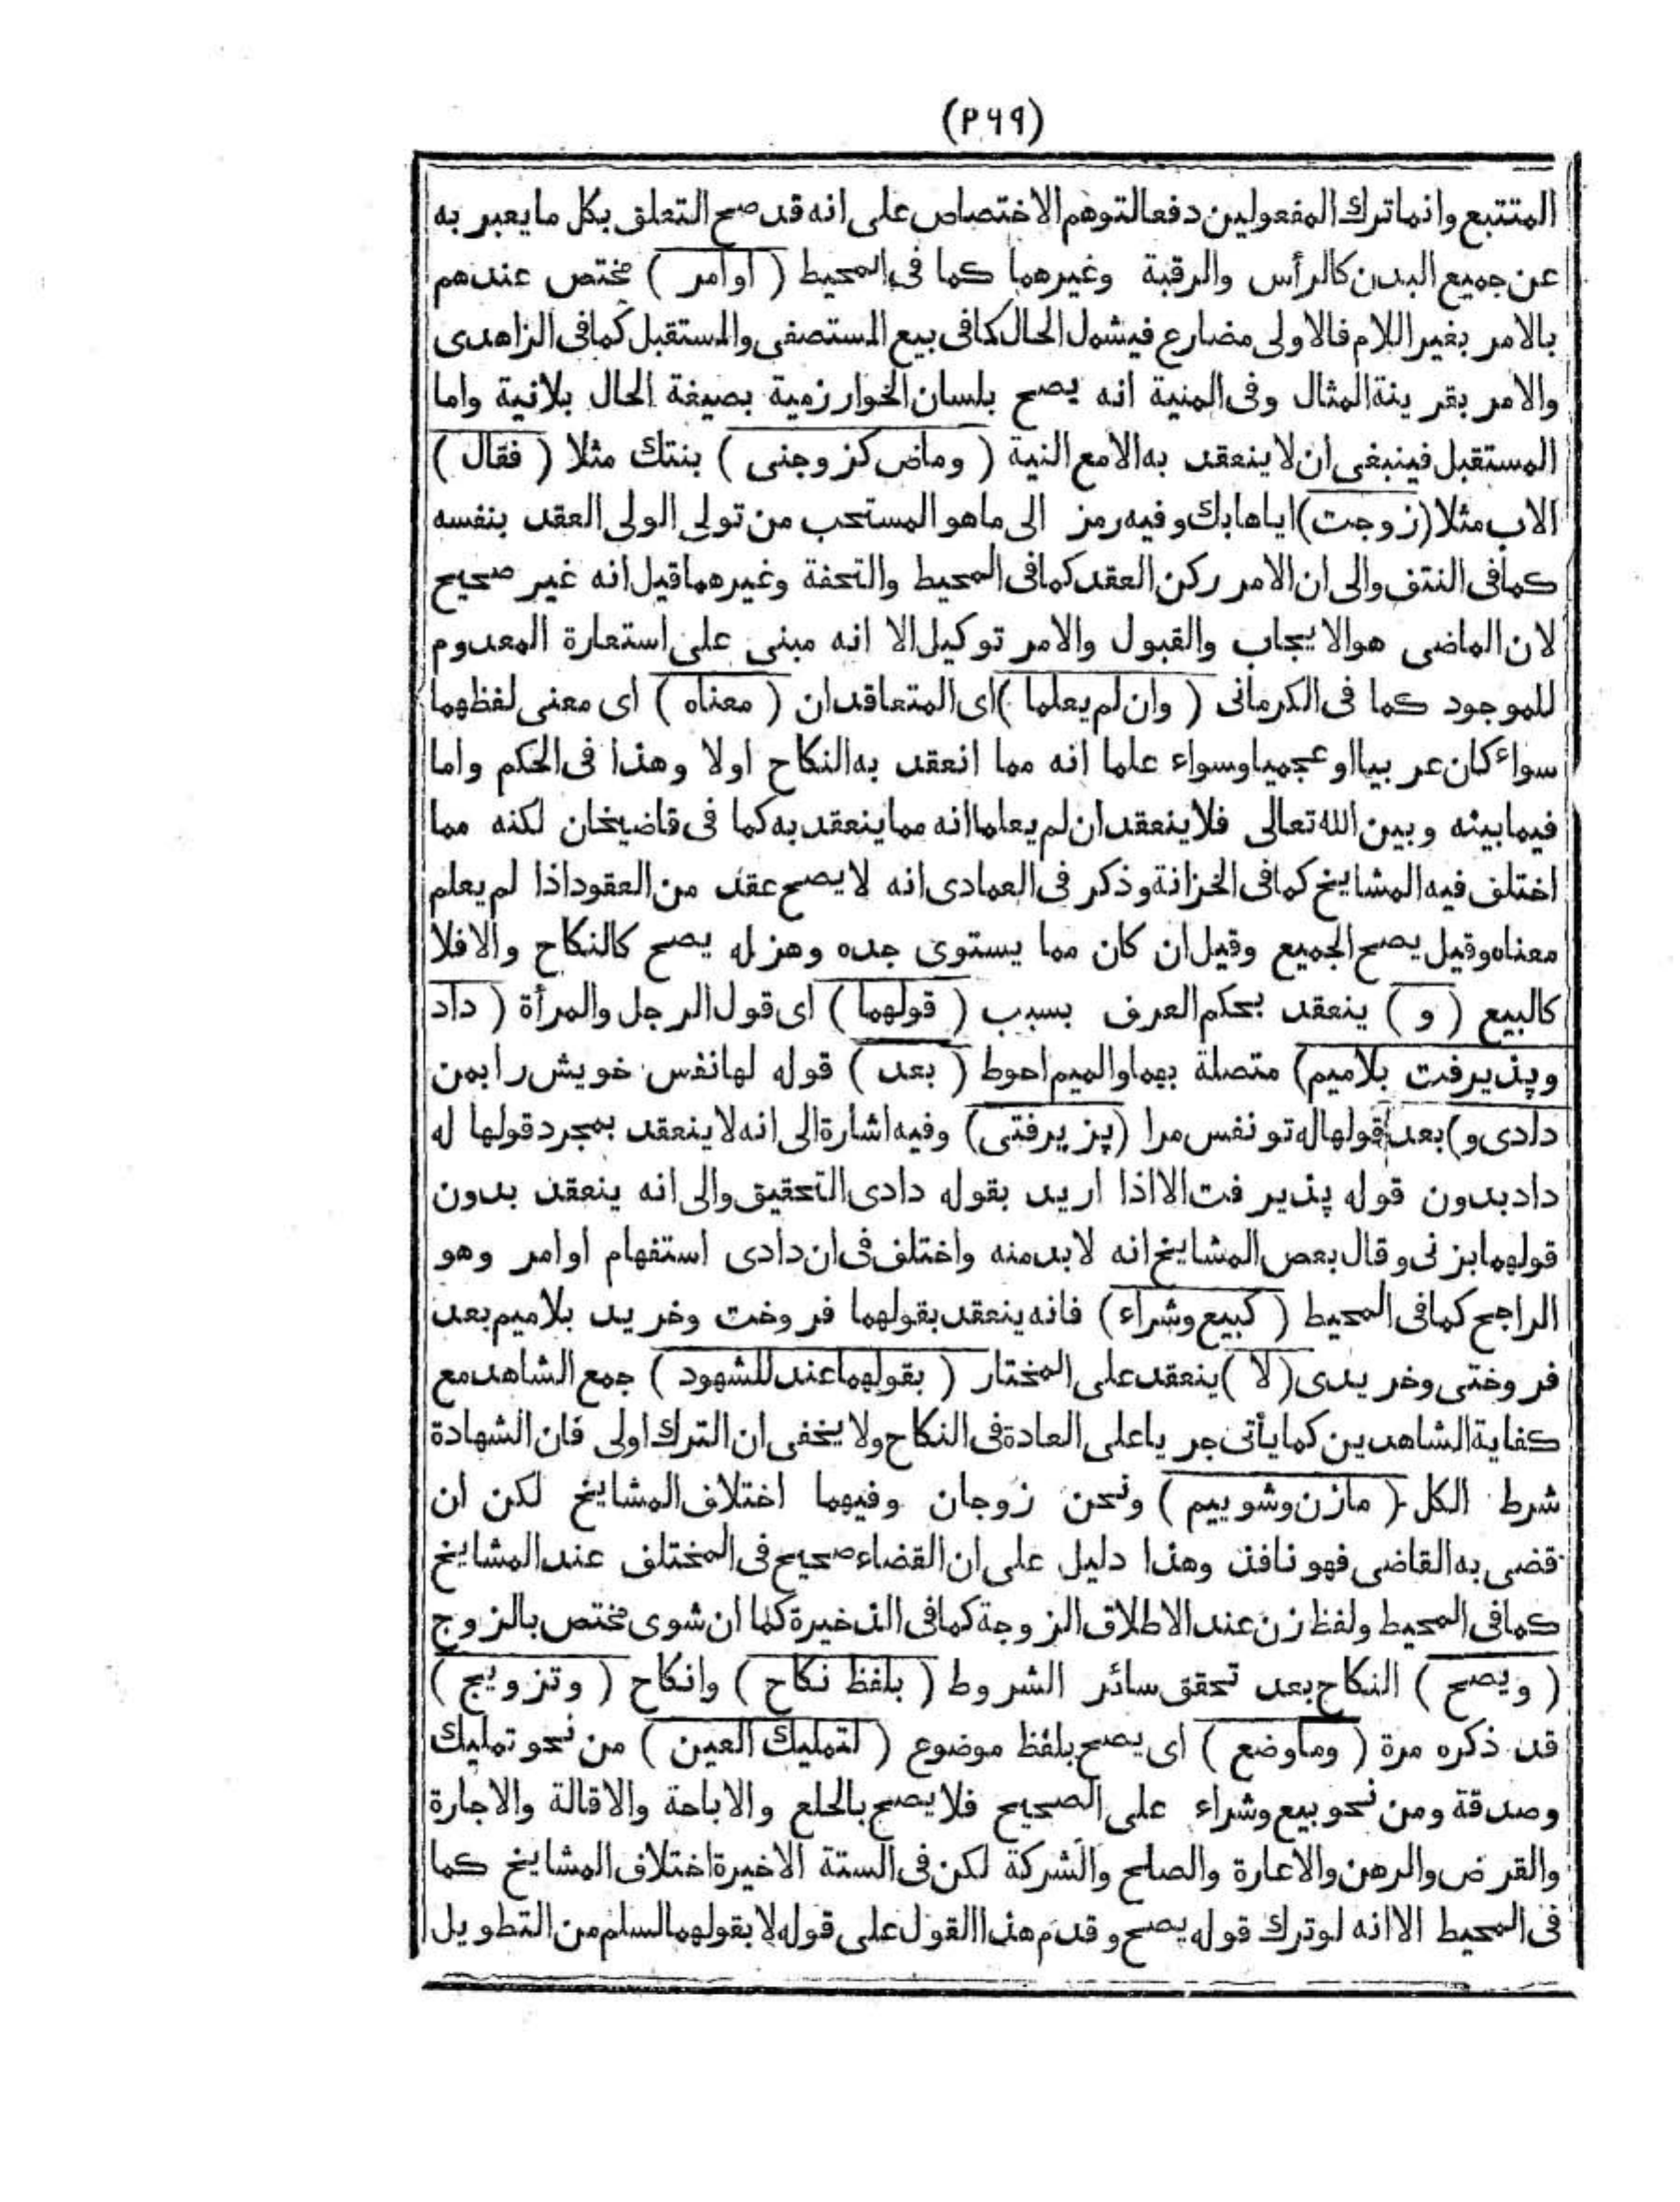 (٢٦٩)
المتتبع وانما ترك المفعولين دفعا لتوهم الاختصاص على انه قد صح التعلق بكل ما يعبر به
عن جميع البدن كالرأس والرقبة وغيرهما كما فى المحيط ( اوامر ) مختص عندهم
بالامر بغير اللام فالاولى مضارع فيشمل الحال كما فى بيع المستصفى والمستقبل كما فى الزاهدى
والامر بقرينة المثال وفى المنية انه يصح بلسان الخوارزمية بصيغة الحال بلانية واما
المستقبل فينبغى ان لا ينعقد به الا مع النية ( وماض كزوجنى ) بنتك مثلا ( فقال )
الاب مثلا (زوجت) اياها بك وفيه رمز الى ما هو المستحب من تولى الولى العقد بنفسه
كما فى النتف والى ان الامر ركن العقد كما فى المحيط والتحفة وغيرهما قيل انه غير صحيح
لان الماضى هو الايجاب والقبول والامر توكيل الا انه مبنى على استعارة المعدوم
للموجود كما فى الكرمانى ( وان لم يعلما ) اى المتعاقدان ( معناه ) اى معنى لفظهما
سواء كان عربيا او عجميا وسواء علما انه مما انعقد به النكاح اولا وهذا فى الحكم واما
فيما بينه وبين الله تعالى فلا ينعقد ان لم يعلما انه مما ينعقد به كما فى قاضيخان لكنه مما
اختلف فيه المشايخ كما فى الخزانة وذكر فى العمادى انه لا يصح عقد من العقود اذا لم يعلم
معناه وقيل يصح الجميع وقيل ان كان مما يستوى جده وهزله يصح كالنكاح والافلا
كالبيع ( و ) ينعقد بحكم العرف بسبب ( قولهما ) اى قول الرجل والمرأة ( داد
وپذيرفت بلاميم) متصلة بهما والميم احوط ( بعد ) قوله لها نفس خويش را بمن
دادى و) بعد قولها له تو نفس مرا (پزيرفتى) وفيه اشارة الى انه لا ينعقد بمجرد قولها له
داد بدون قوله پذيرفت الا اذا اريد بقوله دادى التحقيق والى انه ينعقد بدون
قولهما بزنى وقال بعص المشايخ انه لا بد منه واختلف فى ان دادى استفهام اوامر وهو
الراجح كما فى المحيط ( كبيع وشراء ) فانه ينعقد بقولهما فروخت وخريد بلاميم بعد
فروختى وخريدى ( لا ) ينعقد على المختار ( بقولهما عند للشهود ) جمع الشاهد مع
كفاية الشاهدين كما يأتى جريا على العادة فى النكاح ولا يخفى ان الترك اولى فان الشهادة
شرط الكل ( مازن وشوييم ) ونحن زوجان وفيهما اختلاف المشايخ لكن ان
قضى به القاضى فهو نافذ وهذا دليل على ان القضاء صحيح فى المختلف عند المشايخ
كما فى المحيط ولفظ زن عند الاطلاق الزوجة كما فى الذخيرة كما ان شوى مختص بالزوج
( ويصح ) النكاح بعد تحقق سائر الشروط ( بلفظ نكاح ) وانكاح ( وتزويج )
قد ذكره مرة ( وما وضع ) اى يصح بلفظ موضوع ( لتمليك العين ) من نحو تمليك
وصدقة ومن نحو بيع وشراء على الصحيح فلا يصح بالخلع والاباحة والاقالة والاجارة
والقرض والرهن والاعارة والصلح والشركة لكن فى الستة الاخيرة اختلاف المشايخ كما
فى المحيط الا انه لو ترك قوله يصح وقدم هذا القول على قوله لا بقولهما لسلم من التطويل